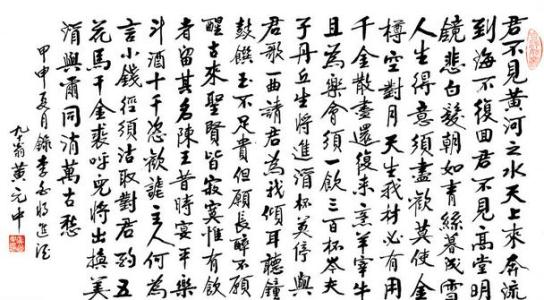 君不見黃河之水天上來奔流
到海不復回君不見高堂明
鏡悲白髮朝如青絲暮成雪
人生得意須盡歡莫使金
樽空對月天生我材必有用
千金散盡還復來烹羊宰牛
且為樂會須一飲三百杯岑夫
子丹丘生將進酒杯莫停與
君歌一曲請君為我傾耳聽鐘
鼓饌玉不足貴但願長醉不願
醒古來聖賢皆寂寞惟有飲
者留其名陳王昔時宴平樂
斗酒十千恣歡謔主人何為
言少錢徑須沽取對君酌五
花馬千金裘呼兒將出換美
酒與爾同消萬古愁
甲申夏月錄李白將進酒
九翁黃元中